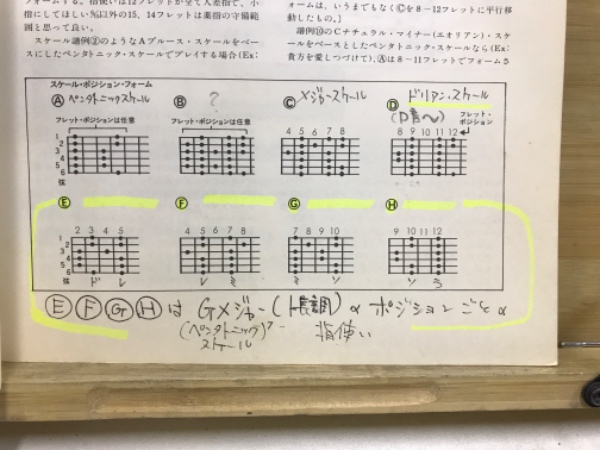 フォームする。指使いは12フレットが全て人差指で、小
指にしてほしい%以外の15、14フレットは薬指の守備範
囲と思って良い。
スケール譜例②のようなAブルース・スケールをベー
スにしたペンタトニック・スケールでプレイする場合(Ex:
ォームは、いうまでもなく©を8－12フレットに平行移
動したもの。]
譜例⑩のCナチュラル・マイナー(エオリアン)・スケ
ールをベースとしたペンタトニック・スケールなら(Ex:
貴方を愛しつづけて)、Ⓐは8－11フレットでフォームさ
スケール・ポジション・フォーム
Ⓐ ペンタトニックスケール
フレット・ポジションは任意
1
2
3
4
5
6
弦
Ⓑ ?
フレット・ポジションは任意
Ⓒ メジャースケール
4 5 6 7 8
Ⓓ ドリアン・スケール
フレット・
ポジション
8 9 10 11 12
Ⓔ
2 3 4 5
1
2
3
4
5
6
弦
ド レ
Ⓕ
4 5 6 7 8
レ ミ
Ⓖ
7 8 9 10
ミ ソ
Ⓗ
9 10 11 12
ソ ラ
Ⓔ Ⓕ Ⓖ Ⓗ は Gメジャー(ト長調) の ポジションごとの
(ペンタトニック)?
スケール
指使い